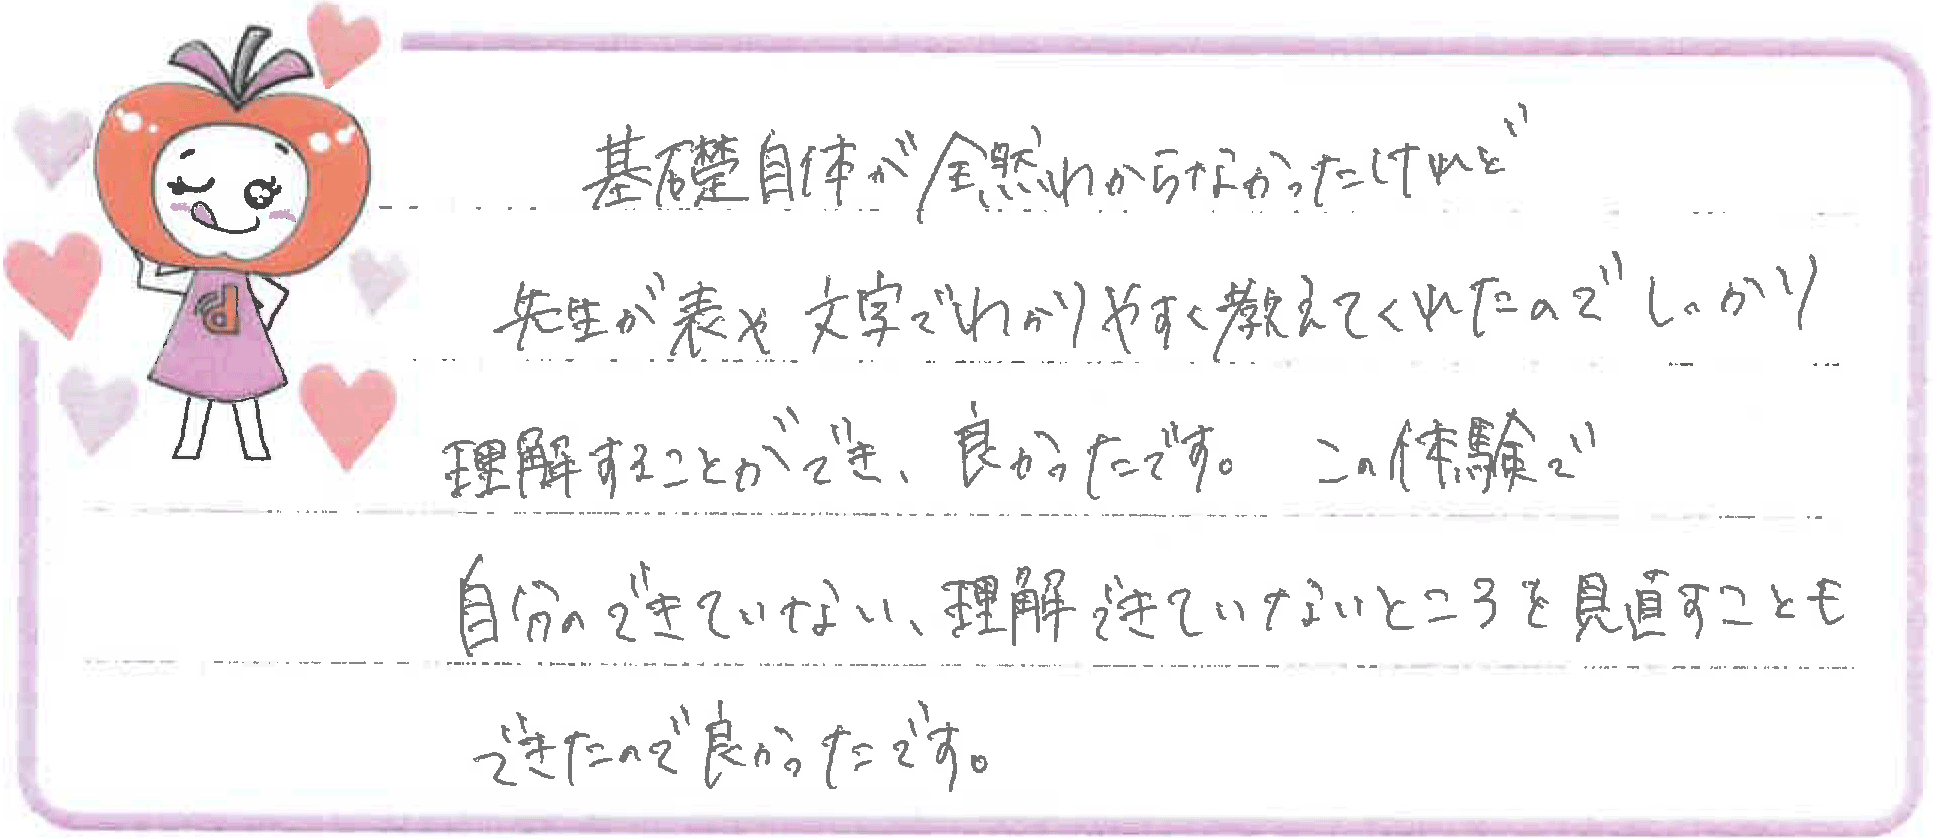 基礎自体が全然わからなかったけれど
先生が表や文字でわかりやすく教えてくれたのでしっかり
理解することができ、良かったです。この体験で
自分のできていない、理解できていないところを見直すことも
できたので良かったです。